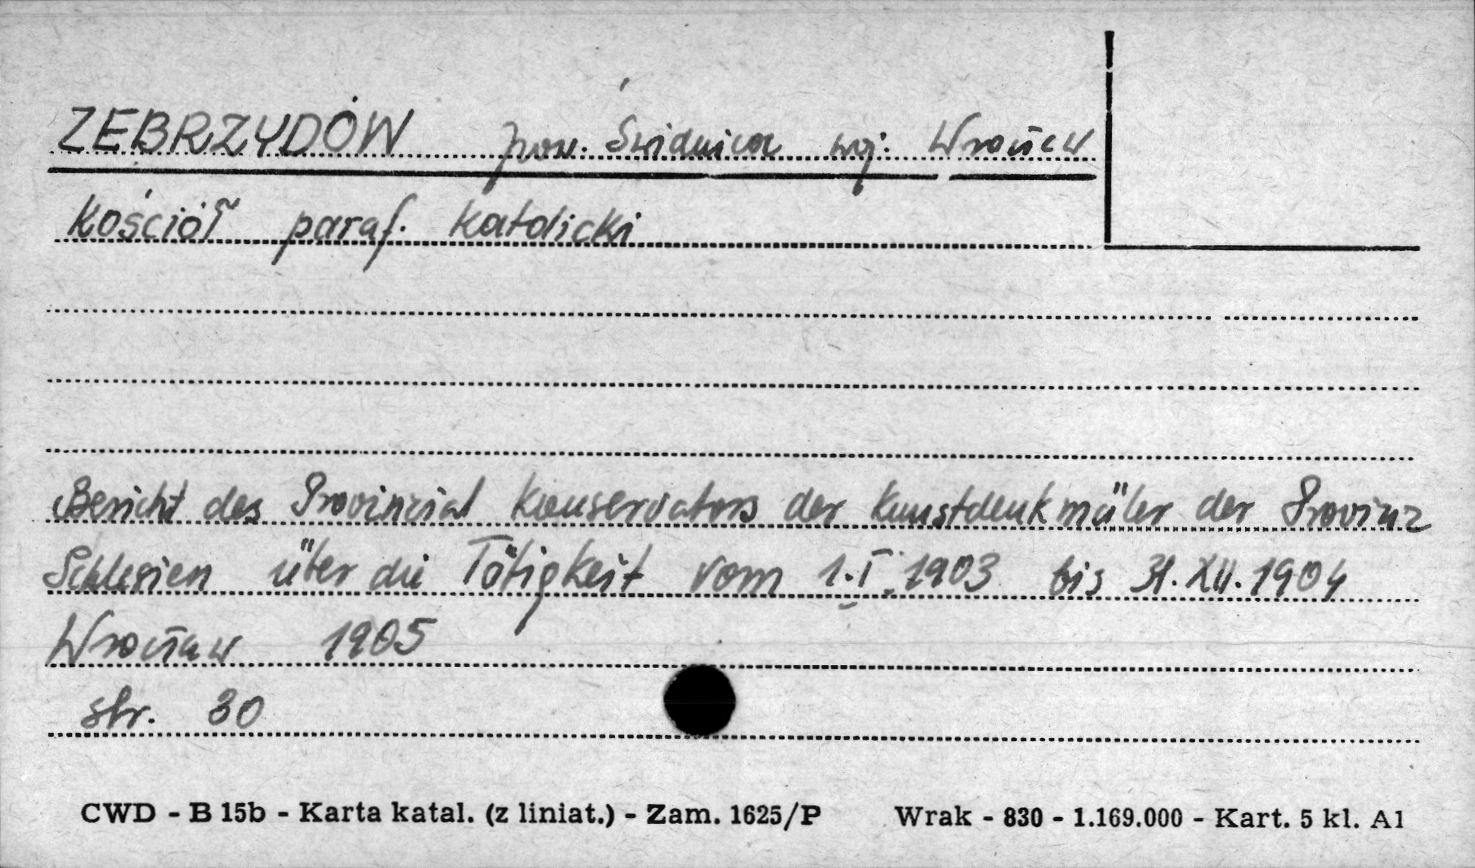 ZEBRZYDÓW pow. Świdnica woj. Wrocław
Kościół paraf. katolicki
Bericht des Provinzial Konservators der Kunstdenkmäler der Provinz
Schlesien über die Tätigkeit vom 1.I.1903 bis 31.XII.1904
Wrocław 1905
str. 30
CWD - B 15b - Karta katal. (z liniat.) - Zam. 1625/P Wrak - 830 - 1.169.000 - Kart. 5 kl. A1